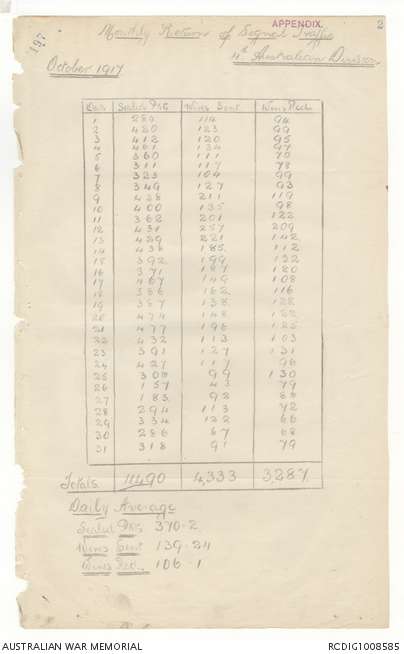 APPENDIX.
2
197
Monthly Return of Signal Traffic
4th Australian Division
October 1917
Date Sealed Pkts Wires Sent Wires Recd
1 286 114 94
2 420 123 99
3 412 120 95
4 461 134 97
5 360 111 70
6 311 117 78
7 323 104 99
8 349 127 93
9 428 211 119
10 400 135 98
11 362 201 122
12 431 257 209
13 429 221 142
14 436 185 112
15 392 199 132
16 371 187 120
17 467 149 108
18 386 162 116
19 387 138 128
20 474 148 122
21 477 196 125
22 432 113 103
23 391 127 131
24 427 117 96
25 308 99 130
26 157 43 79
27 183 92 86
28 294 113 72
29 334 122 66
30 286 87 68
31 318 91 79
Totals 11490 4,333 3,287
Daily Average
Sealed Pkts 370.2
Wires Sent 139.24
Wires Recd. 106.1
AUSTRALIAN WAR MEMORIAL
RCDIG1008585